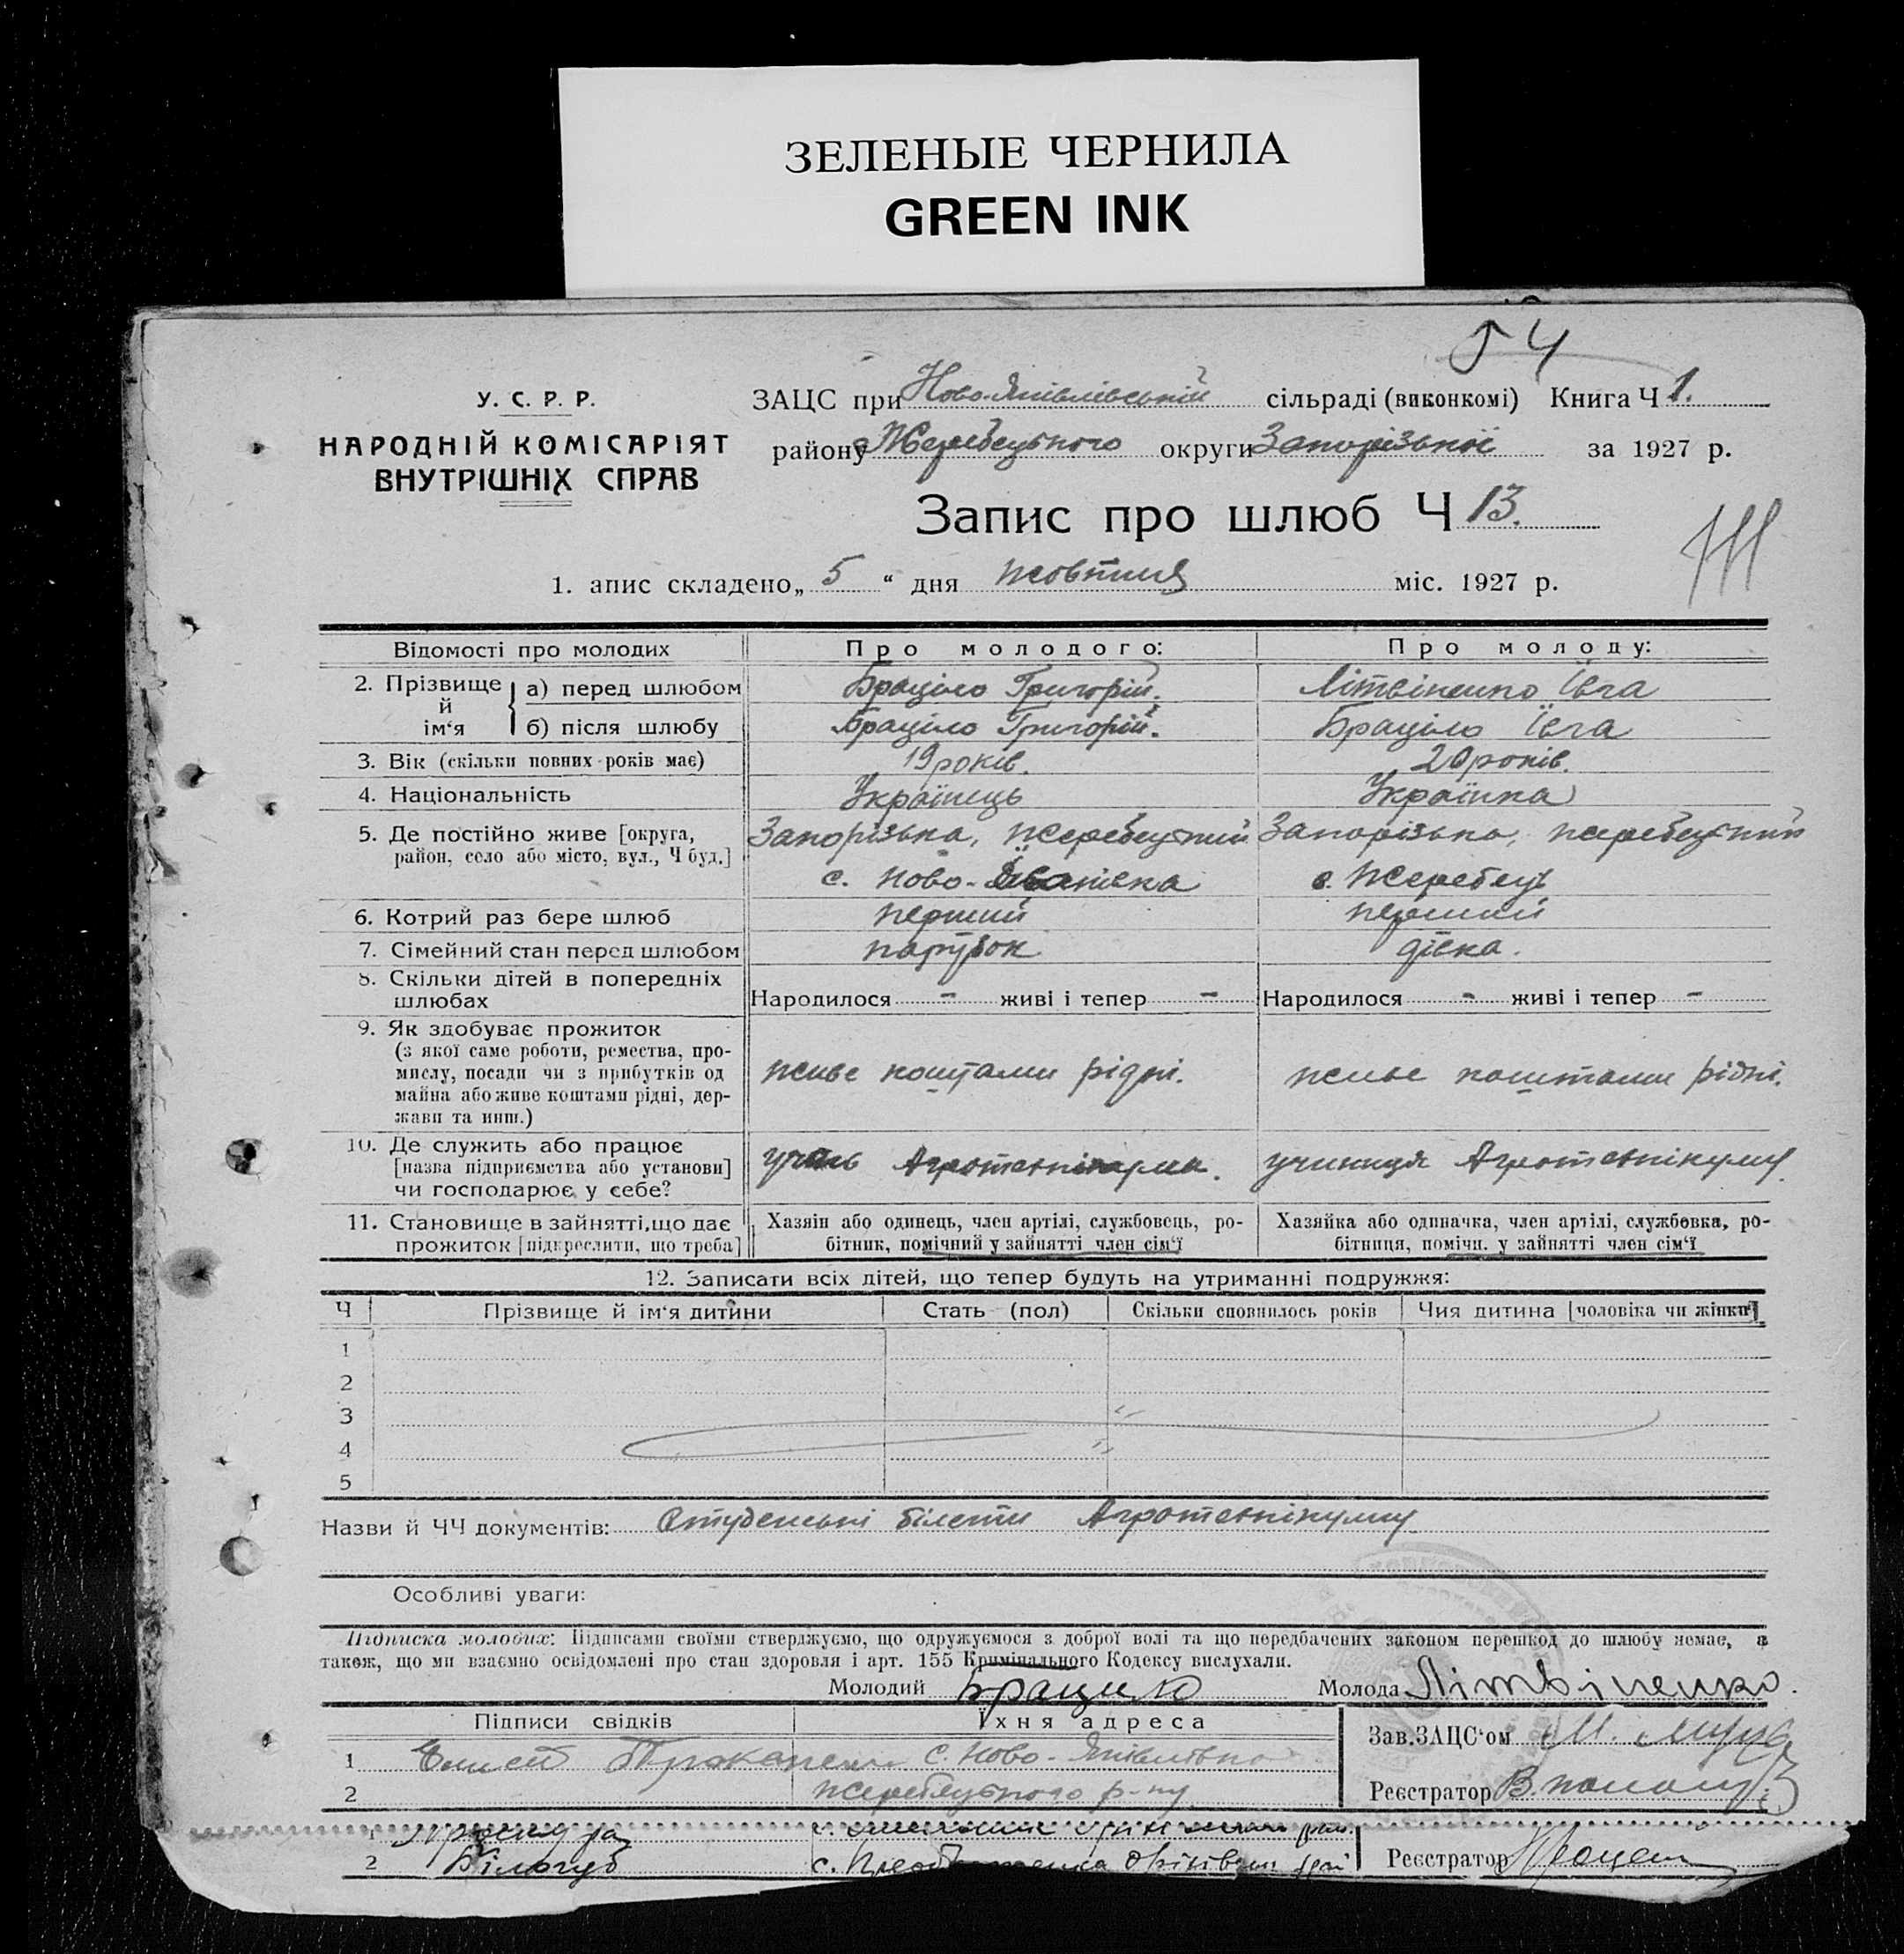 ЗЕЛЕНЫЕ ЧЕРНИЛА
GREEN INK
54
У. С. Р. Р.
НАРОДНІЙ КОМІСАРІЯТ
ВНУТРІШНІХ СПРАВ
ЗАЦС при Ново-Яківлівській сільраді (виконкомі) Книга Ч 1.
району Жеребецького округи Запорізької за 1927 р.
Запис про шлюб Ч 13.
1. апис складено „ 5 “ дня жовтня міс. 1927 р.
Відомості про молодих Про молодого: Про молоду:
2. Прізвище й ім‘я а) перед шлюбом Браціло Григорій. Літвіненко Ївга
б) після шлюбу Браціло Григорій. Браціло Ївга
3. Вік (скільки повних років має) 19 років. 20 років.
4. Національність Українець Українка
5. Де постійно живе [округа, Запорізька, Жеребецький Запорізька, Жеребецький
район, село або місто, вул., Ч буд.] с. Ново- с. Жеребець
6. Котрий раз бере шлюб перший перший
7. Сімейний стан перед шлюбом парубок дівка.
8. Скільки дітей в попередніх
шлюбах Народилося - живі і тепер - Народилося - живі і тепер -
9. Як здобуває прожиток
(з якої саме роботи, ремества, про-
мислу, посади чи з прибутків од живе коштами рідні. живе коштами рідні.
майна або живе коштами рідні, дер-
жави та инш.)
10. Де служить або працює
[назва підприємства або установи] учень Агротехнікума. учениця Агротехнікуму.
чи господарює у себе?
11. Становище в зайнятті, що дає Хазяін або одинець, член артілі, службовець, ро- Хазяйка або одиначка, член артілі, службовка, ро-
прожиток [підкреслити, що треба] бітник, помічний у зайнятті член сім‘ї бітниця, помічн. у зайнятті член сім‘ї
12. Записати всіх дітей, що тепер будуть на утриманні подружжя:
Ч Прізвище й ім‘я дитини Стать (пол) Скільки сповнилось років Чия дитина [чоловіка чи жінки]
1
2
3
4
5
Назви й ЧЧ документів: Студенські білети Агротехнікуму
Особливі уваги:
Підписка молодих: Підписами своїми стверджуємо, що одружуємося з доброї волі та що передбачених законом перешкод до шлюбу немає, а
також, що ми взаємно освідомлені про стан здоровля і арт. 155 Кримінального Кодексу вислухали.
Молодий Брацило Молода Літвіненко.
Підписи свідків Їхня адреса
Зав. ЗАЦС‘ом М.
1 Елисей с. Ново-Яківлівка
2 Жеребецького р-ну Реєстратор В.
1
2 Білогуб с. Реєстратор